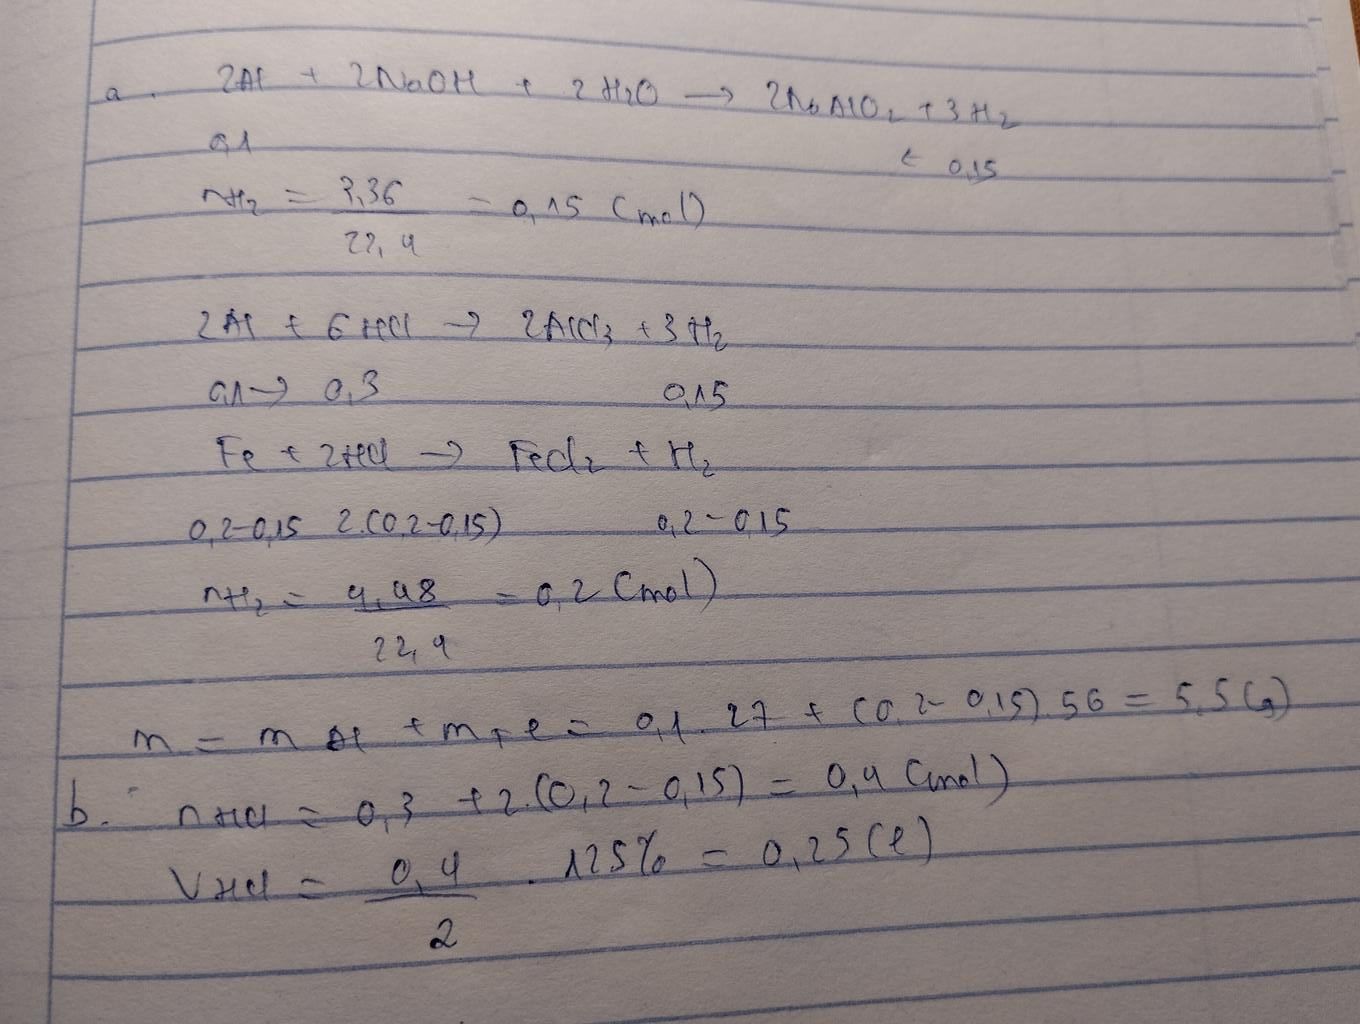 a. 2Al + 2NaOH + 2H₂O → 2NaAlO₂ + 3H₂
0,1 ← 0,15
nH₂ = 3,36 / 22,4 = 0,15 (mol)
2Al + 6HCl → 2AlCl₃ + 3H₂
0,1 → 0,3 0,15
Fe + 2HCl → FeCl₂ + H₂
0,2-0,15 2.(0,2-0,15) 0,2-0,15
nH₂ = 4,48 / 22,4 = 0,2 (mol)
m = mAl + mFe = 0,1.27 + (0,2-0,15).56 = 5,5 (g)
b. nHCl = 0,3 + 2.(0,2-0,15) = 0,4 (mol)
VHCl = 0,4 / 2 . 125% = 0,25 (l)